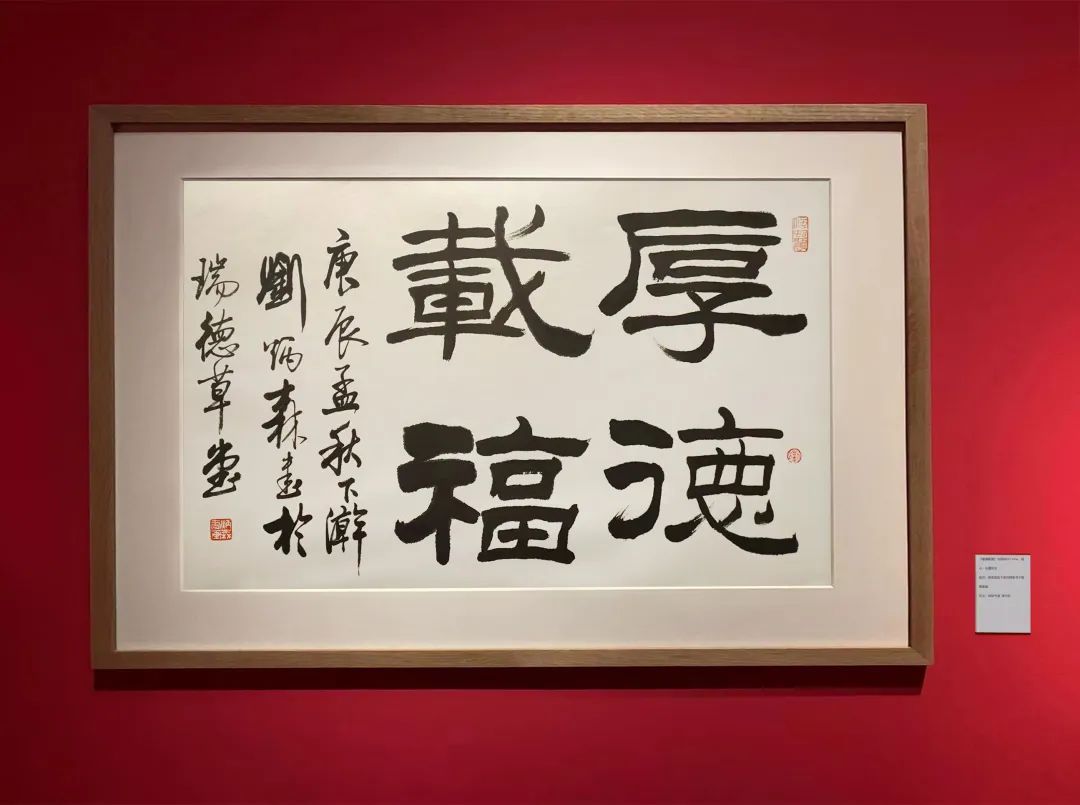 厚德
載福
庚辰孟秋下澣
劉炳森書於
瑞德草堂